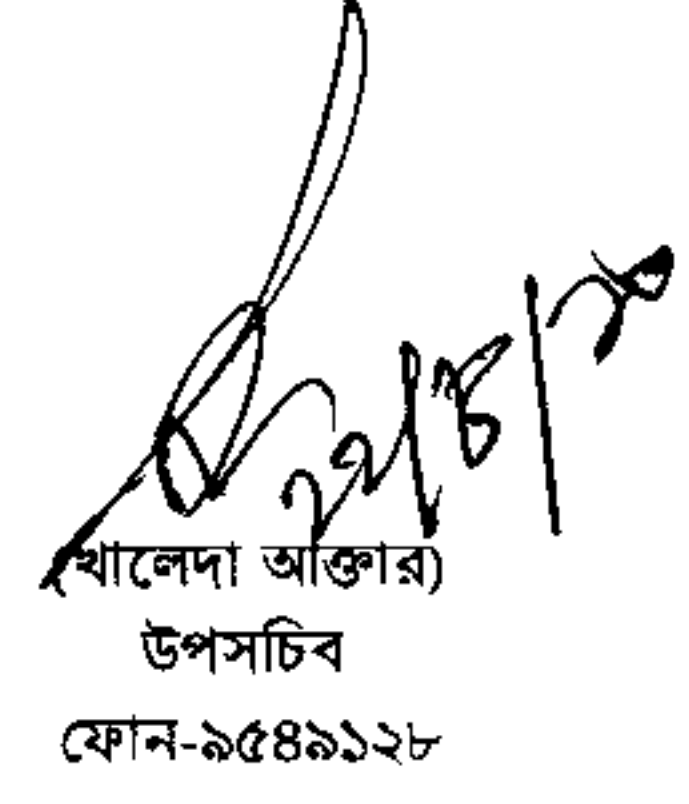 (খালেদা আক্তার)
উপসচিব
ফোন-৯৫৪৯১২৮